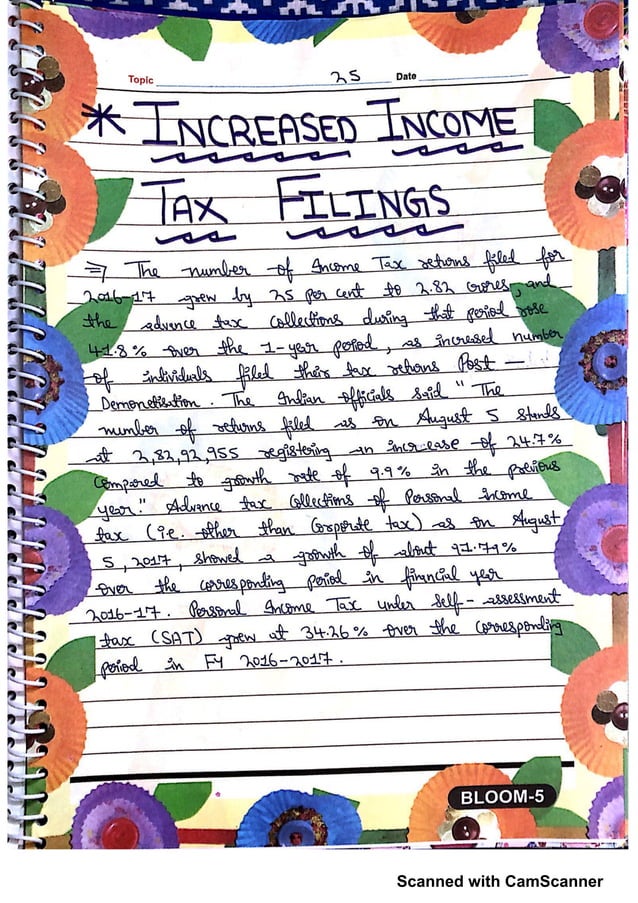 Topic 25 Date
* INCREASED INCOME
TAX FILINGS
⇒ The number of Income Tax returns filed for
2016-17 grew by 25 per cent to 2.82 crores, and
the advance tax collections during that period rose
41.8% over the 1-year period, as incresed number
of individuals filed their tax returns Post -
Demonetisation. The Indian officials said " The
number of returns filed as on August 5 stands
at 2,82,92,955 registering an increase of 24.7%
Compared to growth rate of 9.9% in the previous
year." Advance tax Collections of Personal income
tax (i.e. other than Corporate tax) as on August
5, 2017, showed a growth of about 41.79%
over the corresponding period in financial year
2016-17. Personal Income Tax under Self-assessment
tax (SAT) grew at 34.26% over the corresponding
period in FY 2016-2017.
BLOOM-5
Scanned with CamScanner